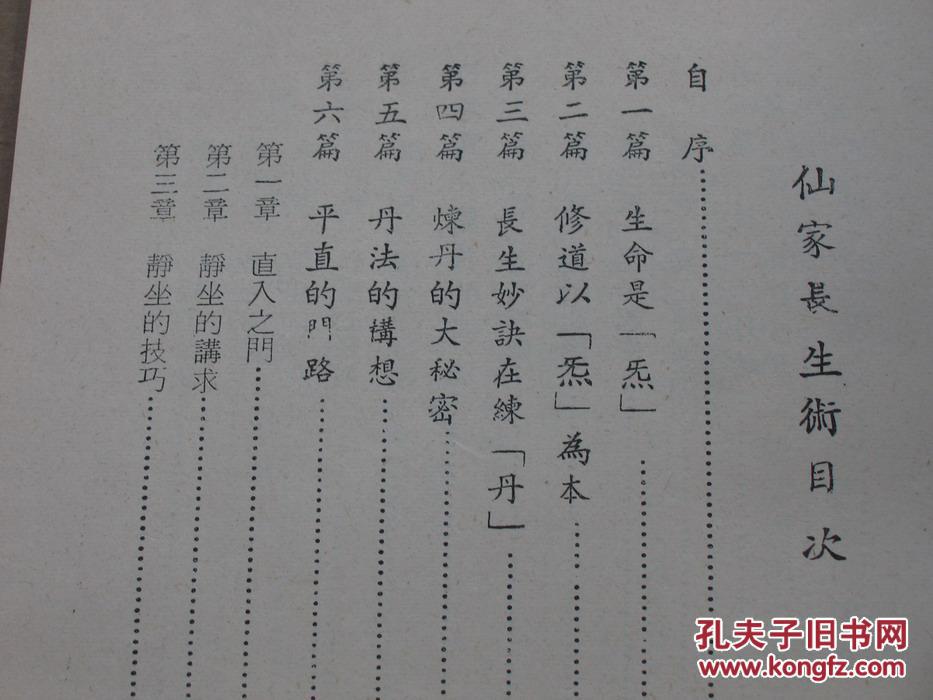 仙家長生術目次
自序
第一篇 生命是「炁」
第二篇 修道以「炁」為本
第三篇 長生妙訣在練「丹」
第四篇 煉丹的大秘密
第五篇 丹法的構想
第六篇 平直的門路
第一章 直入之門
第二章 靜坐的講求
第三章 靜坐的技巧
孔夫子旧书网
www.kongfz.com